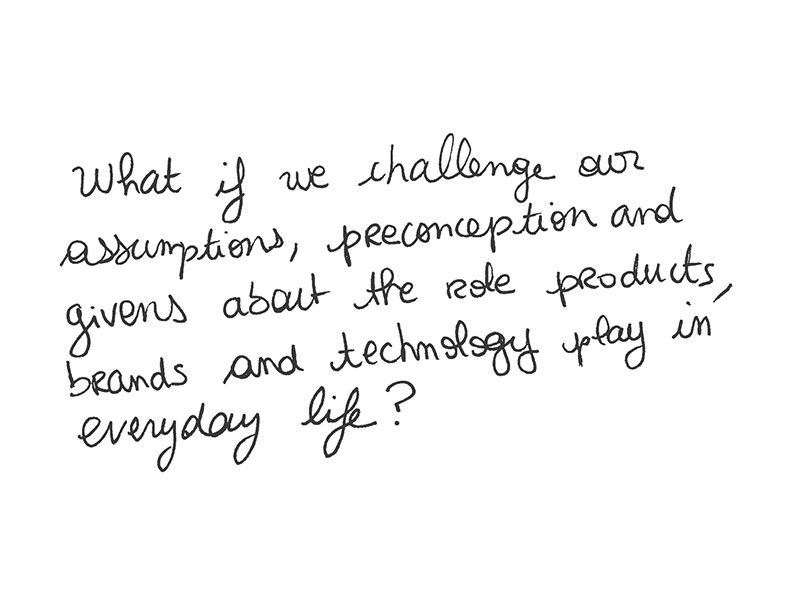 What if we challenge our
assumptions, preconception and
givens about the role products,
brands and technology play in
everyday life?